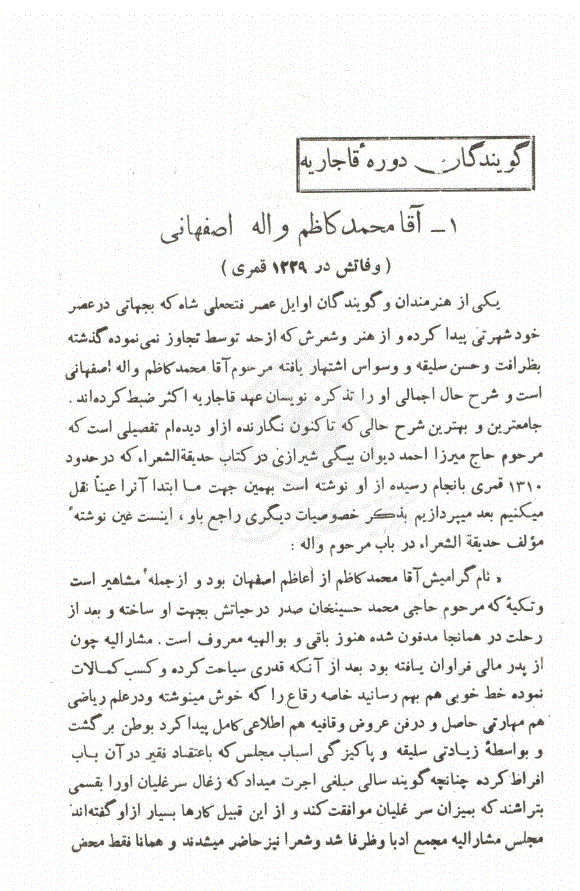 گویندگان دورهٔ قاجاریه
۱ـ آقا محمد کاظم واله اصفهانی
( وفاتش در ۱۲۲۹ قمری )
یکی از هنرمندان و گویندگان اوایل عصر فتحعلی شاه که بجهاتی در عصر
خود شهرتی پیدا کرده و از هنر وشعرش که از حد توسط تجاوز نمی نموده گذشته
بظرافت و حسن سلیقه و وسواس اشتهار یافته مرحوم آقا محمد کاظم واله اصفهانی
است و شرح حال اجمالی او را تذکره نویسان عهد قاجاریه اکثر ضبط کرده اند .
جامعترین و بهترین شرح حالی که تاکنون نگارنده از او دیده ام تفصیلی است که
مرحوم حاج میرزا احمد دیوان بیگی شیرازی در کتاب حدیقة الشعراء که در حدود
۱۳۱۰ قمری بانجام رسیده از او نوشته است بهمین جهت ما ابتدا آنرا عیناً نقل
میکنیم بعد میپردازیم بذکر خصوصیات دیگری راجع باو ، اینست عین نوشتهٔ
مؤلف حدیقة الشعراء در باب مرحوم واله :
« نام گرامیش آقا محمد کاظم از اعاظم اصفهان بود و از جملهٔ مشاهیر است
وتکیهٔ که مرحوم حاجی محمد حسینخان صدر در حیاتش بجهت او ساخته و بعد از
رحلت در همانجا مدفون شده هنوز باقی و بوالهیه معروف است . مشارالیه چون
از پدر مالی فراوان یافته بود بعد از آنکه قدری سیاحت کرده و کسب کمالات
نموده خط خوبی هم بهم رسانید خاصه رقاع را که خوش مینوشته ودرعلم ریاضی
هم مهارتی حاصل و درفن عروض وقافیه هم اطلاعی کامل پیدا کرد بوطن برگشت
و بواسطهٔ زیادتی سلیقه و پاکیزگی اسباب مجلس که باعتقاد فقیر در آن باب
افراط کرده چنانچه گویند سالی مبلغی اجرت میداد که زغال سرغلیان اورا بقسمی
بتراشند که بمیزان سر غلیان موافقت کند و از این قبیل کارها بسیار از او گفته اند
مجلس مشارالیه مجمع ادبا وظرفا شد وشعرا نیز حاضر میشدند و همانا فقط محض